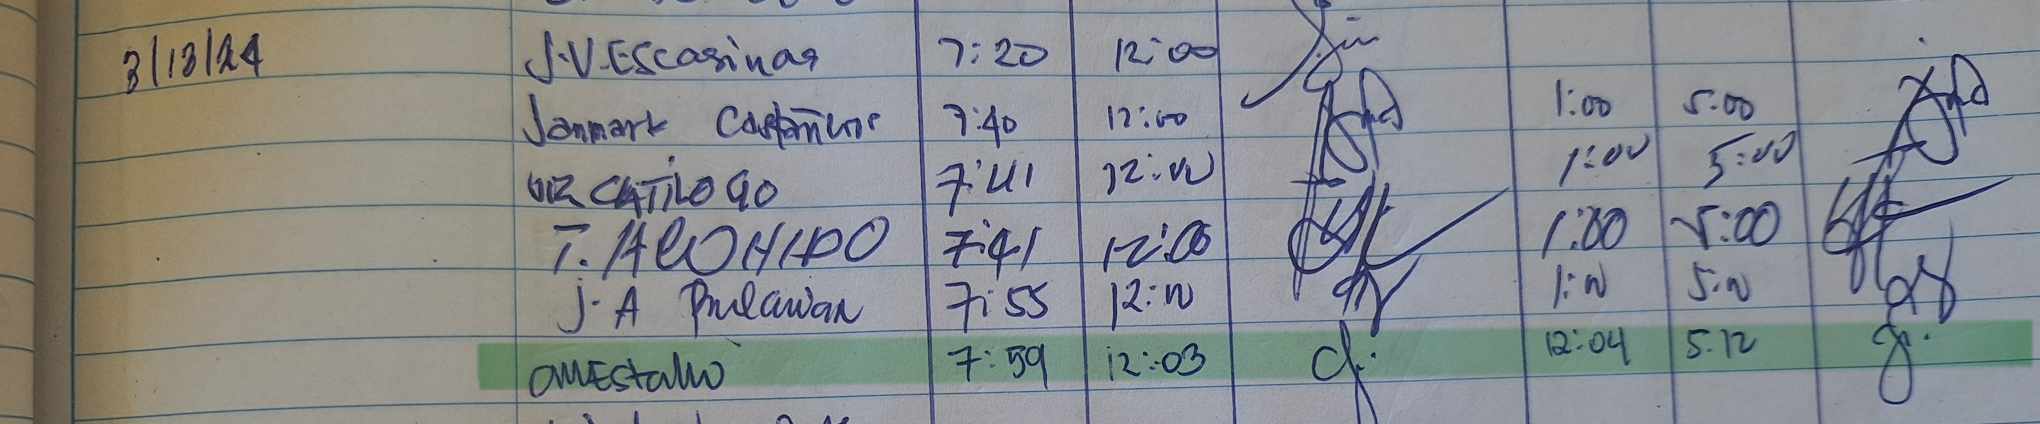 3/13/24 J.V.Escasinas 7:20 12:00
Janmark 7:40 12:00 1:00 5:00
CATILOGO 7:41 12:00 1:00 5:00
T. 7:41 12:00 1:00 5:00
J.A Pulawan 7:55 12:00 1:00 5:00
7:59 12:03 12:04 5:12